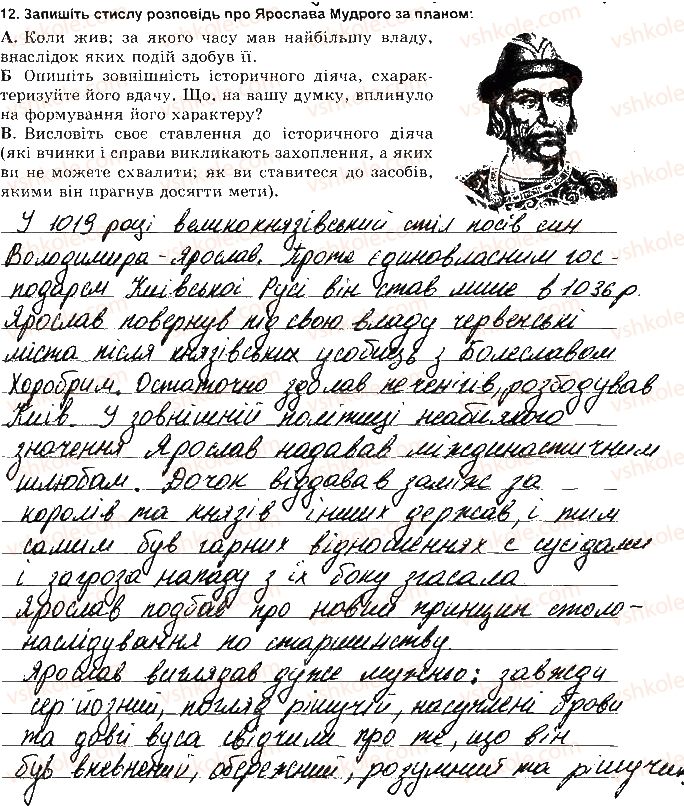 12. Запишіть стислу розповідь про Ярослава Мудрого за планом:
А. Коли жив; за якого часу мав найбільшу владу,
внаслідок яких подій здобув її.
Б Опишіть зовнішність історичного діяча, схарак-
теризуйте його вдачу. Що, на вашу думку, вплинуло
на формування його характеру?
В. Висловіть своє ставлення до історичного діяча
(які вчинки і справи викликають захоплення, а яких
ви не можете схвалити; як ви ставитеся до засобів,
якими він прагнув досягти мети).
У 1019 році великокнязівський стіл посів син
Володимира - Ярослав. Проте єдиновласним гос-
подарем Київської Русі він став лише в 1036 р.
Ярослав повернув під свою владу червенські
міста після князівських усобиць з Болеславом
Хоробрим. Остаточно здолав печенігів, розбодував
Київ. У зовнішній політиці неабиякого
значення Ярослав надавав міждинастичним
шлюбам. Дочок віддавав заміж за
королів та князів інших держав, і тим
самим був гарних відносиннях с сусідами
і загроза нападу з їх бону згасала
Ярослав подбав про новий принцип столо-
наслідування по старшинству.
Ярослав виглядав дуже мужньо: завжди
сер'йозний, погляд рішучий, насуплені брови
та довгі вуса свідчили про те, що він
був впевнений, обережний, розумний та рішучий.